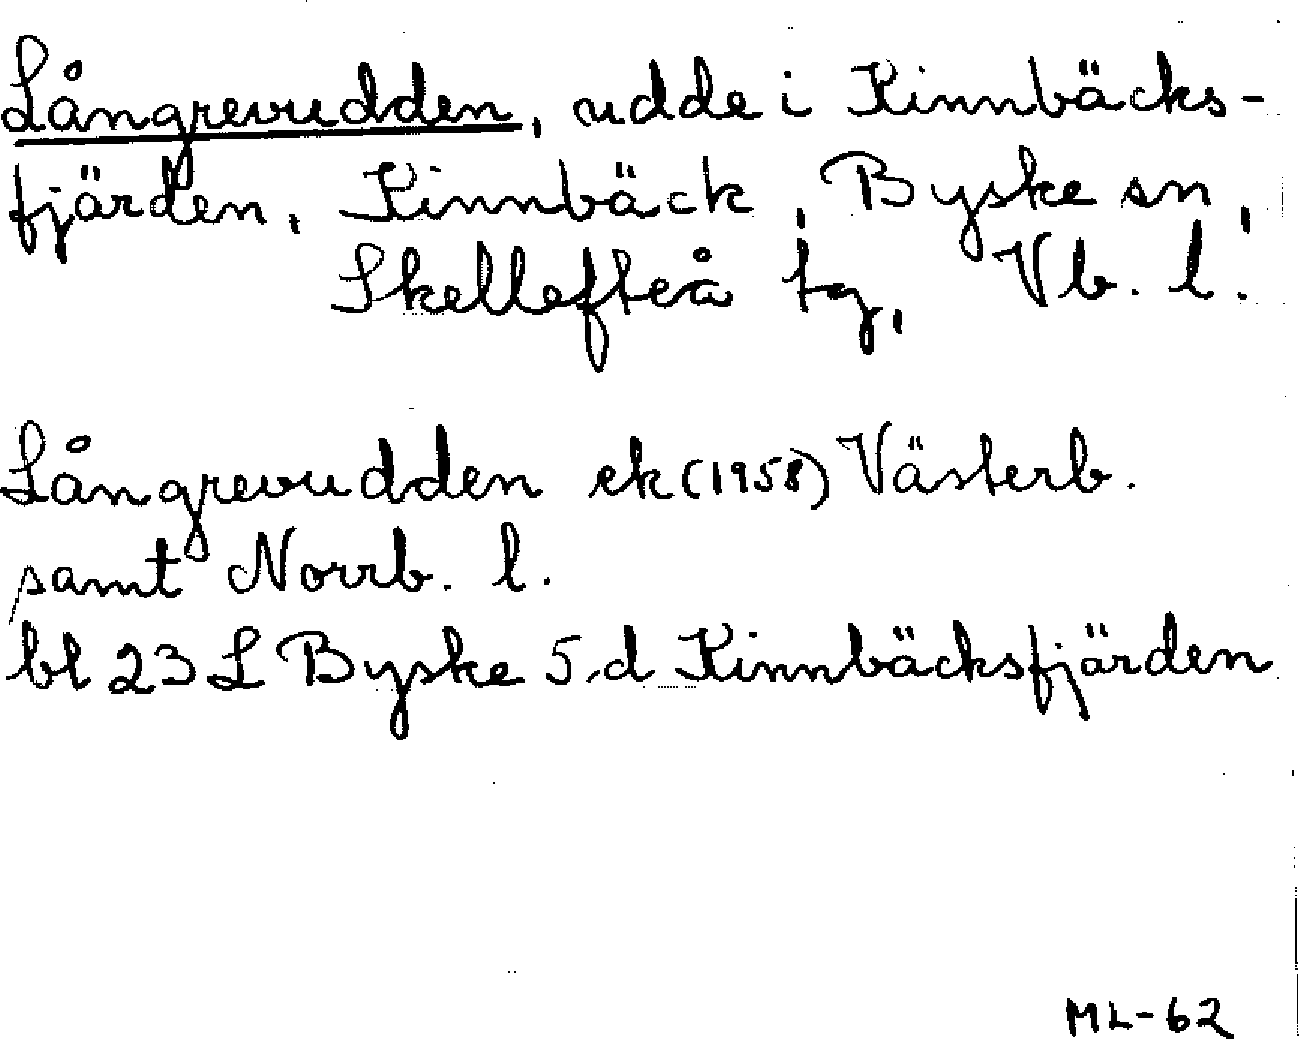 Långrevudden, udde i Kinnbäcks-
fjärden, Kinnbäck, Byske sn,
Skellefteå tg, Vb. l.
Långrevudden ek (1958) Västerb.
samt Norrb. l.
bl 23 L Byske 5,d Kinnbäcksfjärden
ML-62